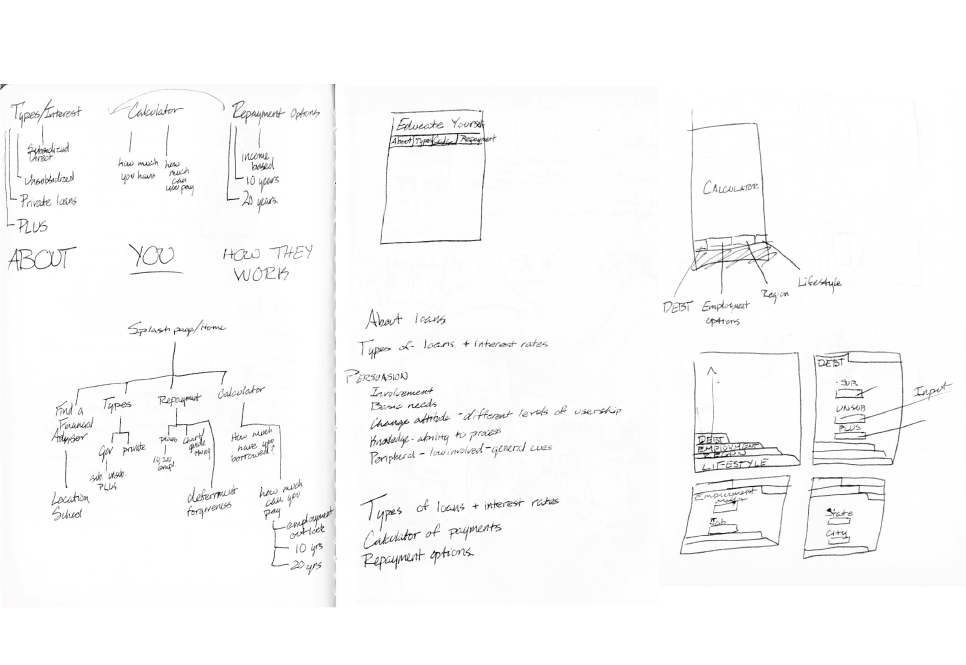 Types/Interest
Subsidized
Direct
Unsobsidized
Private loans
PLUS
Calculator
how much
you have
how
much
can
you pay
Repayment Options
income
based
10 years
20 years
ABOUT
YOU
HOW THEY
WORK
Splash page/Home
Find a
Financial
Advisor
Location
School
Types
Gov private
sub unsub
PLUS
Repayment
plans
10, 20
chart/
guide
thing
deferment
forgiveness
Calculator
How much
have you
borrowed?
how much
can you
pay
employment
outlook
10 yrs
20 yrs
Educate Yourself
About Types Calcu. Repayment
About loans
Types of loans + interest rates
PERSUASION
Involvement
Basic needs
Change attitude - different levels of usership
Knowledge - ability to process
Peripheral - low involved - general cues
Types of loans + interest rates
Calculator of payments
Repayment options.
CALCULATOR
DEBT
Employment
options
Region
Lifestyle
DEBT
EMPLOYMENT
REGION
LIFESTYLE
DEBT
SUB
UNSUB
PLUS
Input
Employment
Major
Job
State
City